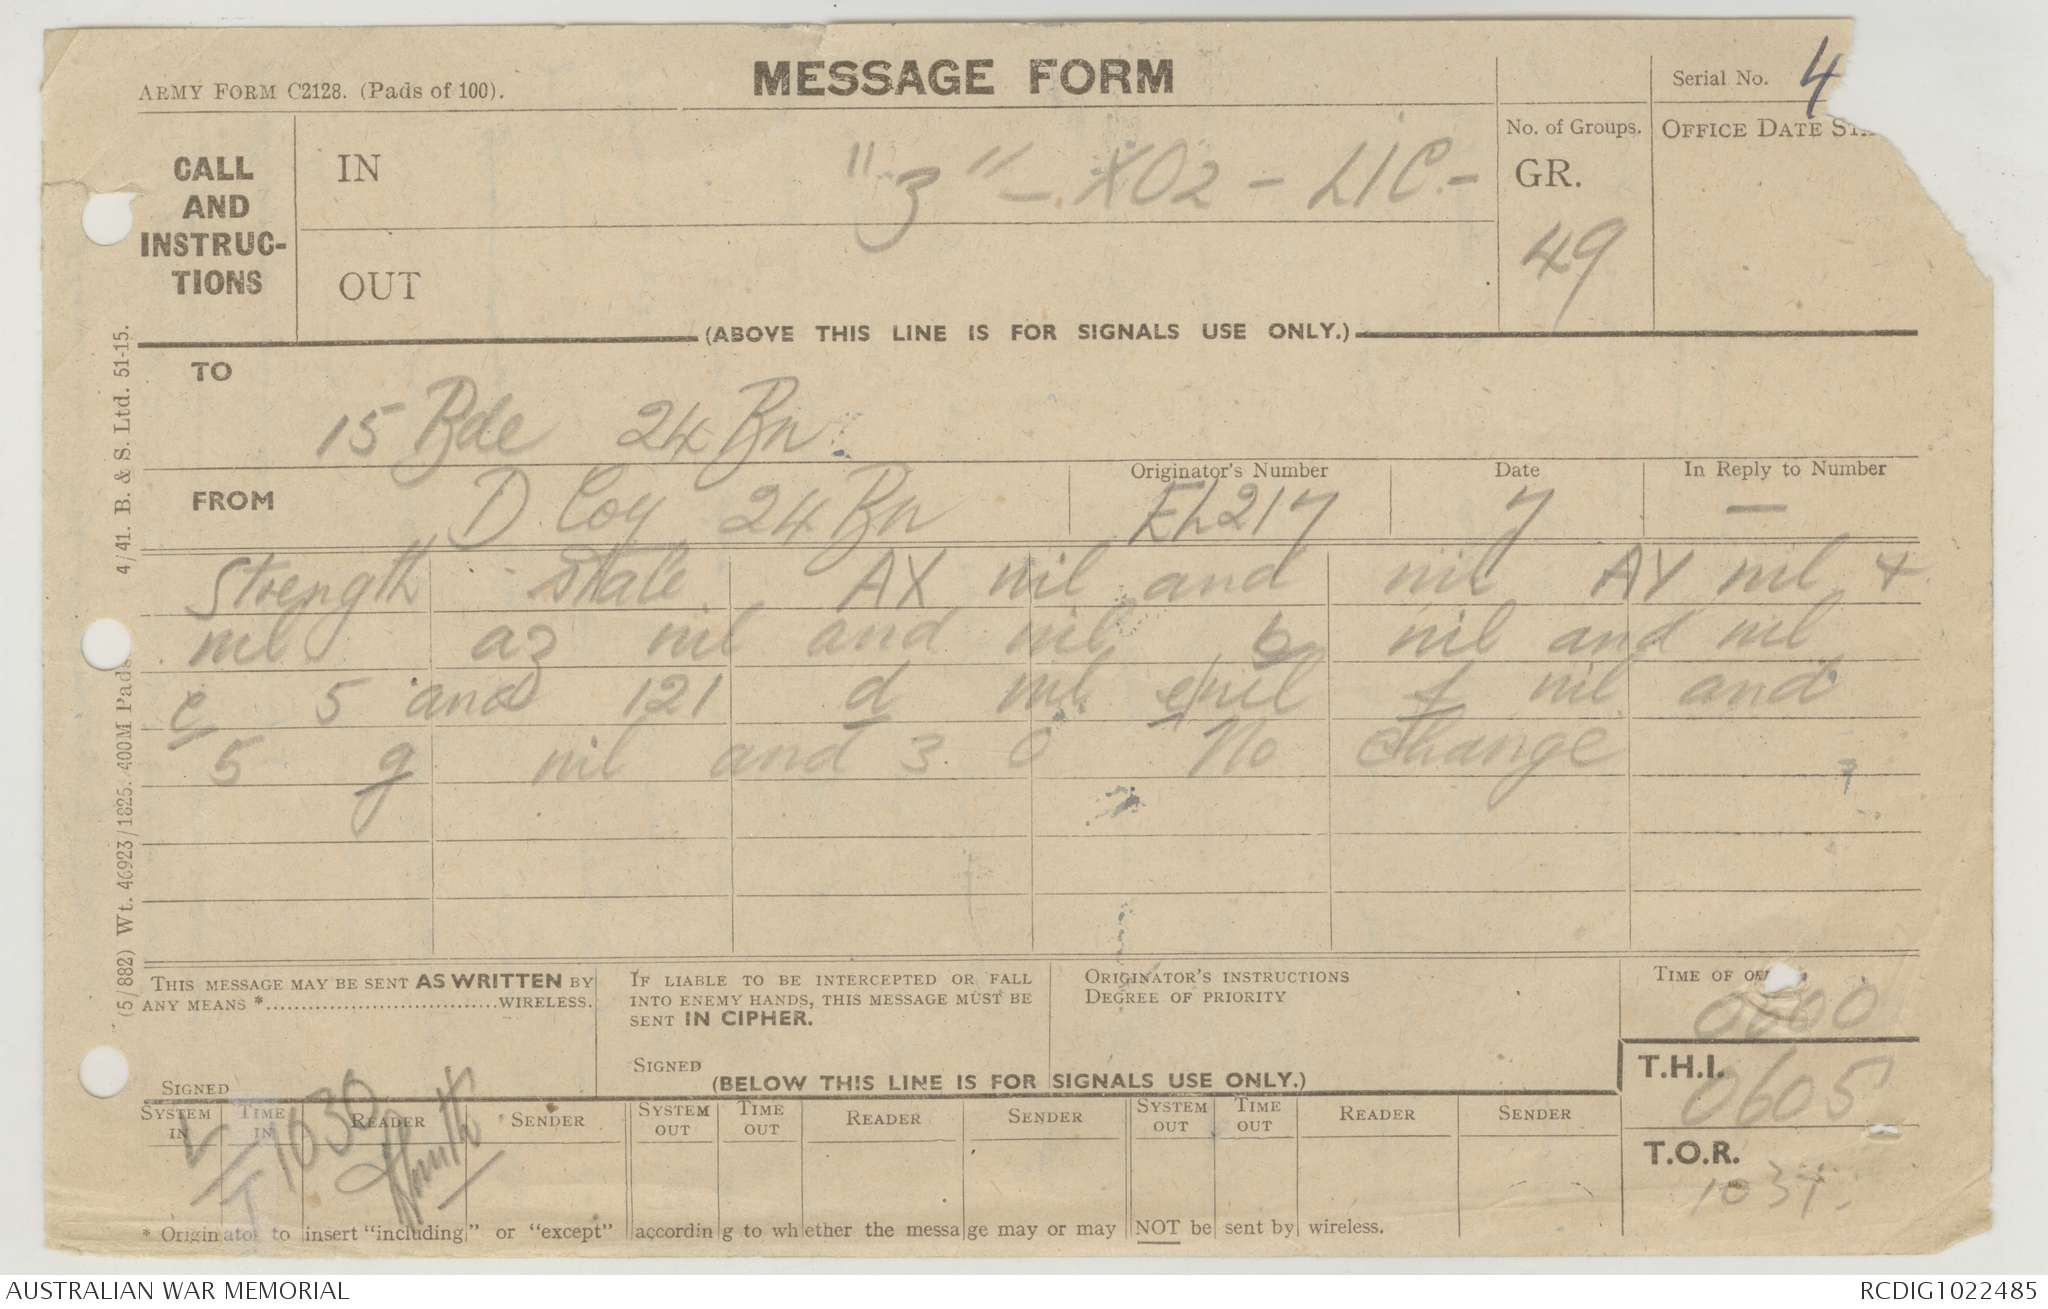 ARMY FORM C2128. (Pads of 100).
MESSAGE FORM
Serial No. 4
CALL AND INSTRUC-TIONS
IN "3" - XO2 - LIC -
OUT
No. of Groups.
GR.
49
OFFICE DATE STA
(ABOVE THIS LINE IS FOR SIGNALS USE ONLY.)
TO
15 Bde 24 Bn
FROM D Coy 24 Bn
Originator's Number
EL217
Date
7
In Reply to Number
—
Strength State AX nil and nil AY nil +
nil az nil and nil b nil and nil
c 5 and 121 d nil e/nil f nil and
5 g nil and 3 0 No Change
THIS MESSAGE MAY BE SENT AS WRITTEN BY
ANY MEANS *..................................WIRELESS.
SIGNED
IF LIABLE TO BE INTERCEPTED OR FALL
INTO ENEMY HANDS, THIS MESSAGE MUST BE
SENT IN CIPHER.
SIGNED
ORIGINATOR'S INSTRUCTIONS
DEGREE OF PRIORITY
TIME OF
0600
T.H.I.
0605
T.O.R.
1037
(BELOW THIS LINE IS FOR SIGNALS USE ONLY.)
SYSTEM IN
TIME IN
READER
SENDER
SYSTEM OUT
TIME OUT
READER
SENDER
SYSTEM OUT
TIME OUT
READER
SENDER
1030
* Originator to insert "including" or "except" according to whether the message may or may NOT be sent by wireless.
(5/882) Wt. 46923/1825. 400M Pads 4/41. B. & S. Ltd. 51-15.
AUSTRALIAN WAR MEMORIAL
RCDIG1022485